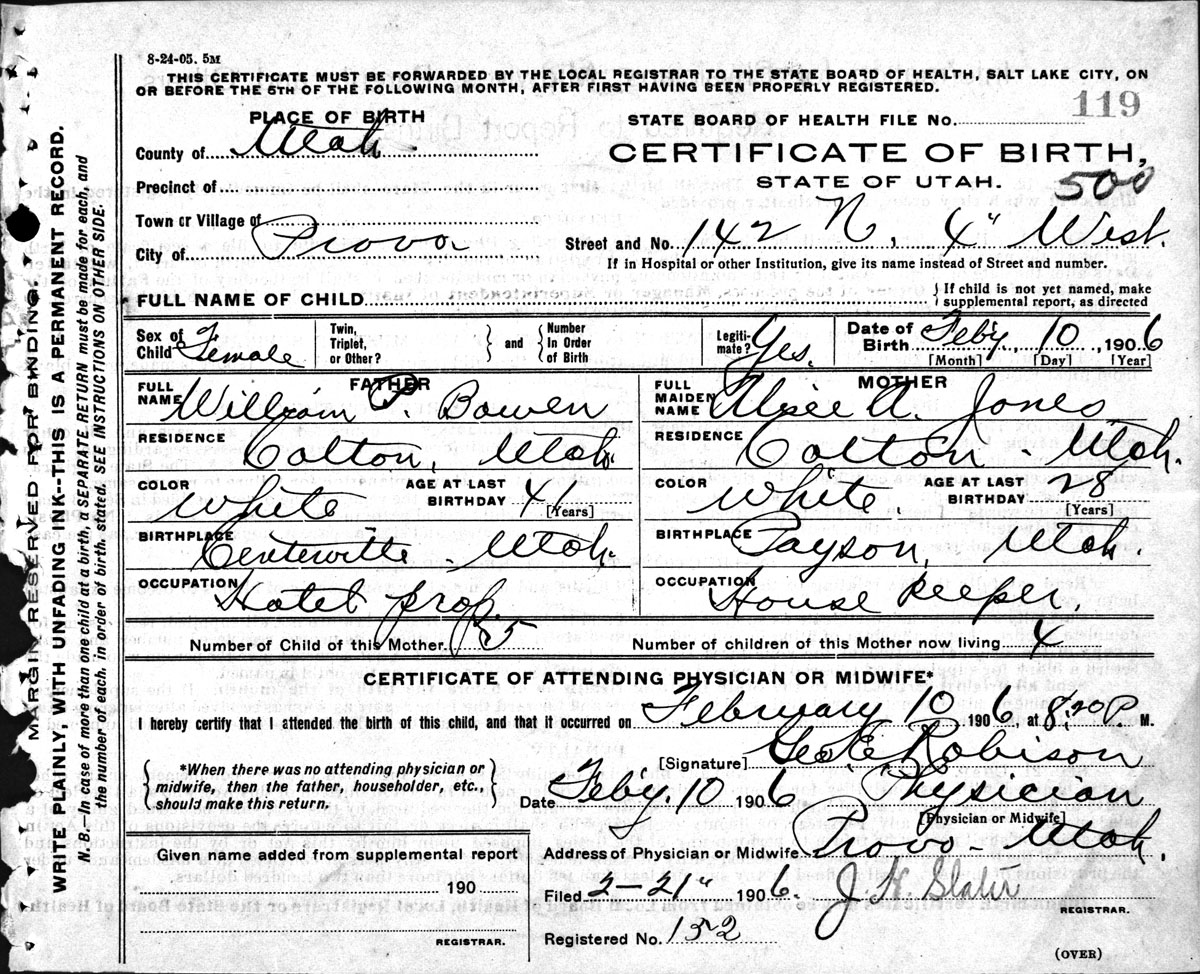 8-24-05. 5M
THIS CERTIFICATE MUST BE FORWARDED BY THE LOCAL REGISTRAR TO THE STATE BOARD OF HEALTH, SALT LAKE CITY, ON
OR BEFORE THE 5TH OF THE FOLLOWING MONTH, AFTER FIRST HAVING BEEN PROPERLY REGISTERED.
119
PLACE OF BIRTH
STATE BOARD OF HEALTH FILE No.
County of Utah.
CERTIFICATE OF BIRTH,
STATE OF UTAH.
500
Precinct of
Town or Village of
City of Provo
Street and No. 142 N, 4" West.
If in Hospital or other Institution, give its name instead of Street and number.
FULL NAME OF CHILD
If child is not yet named, make
supplemental report, as directed
Sex of Child Female
Twin, Triplet, or Other?
and
Number In Order of Birth
Legiti-mate? Yes.
Date of Birth Feby, 10, 1906
[Month] [Day] [Year]
FATHER
FULL NAME William P. Bowen
RESIDENCE Colton, Utah.
COLOR White
AGE AT LAST BIRTHDAY 41
[Years]
BIRTHPLACE Centerville - Utah.
OCCUPATION Hotel prop
MOTHER
FULL MAIDEN NAME Alice A. Jones
RESIDENCE Colton - Utah.
COLOR White.
AGE AT LAST BIRTHDAY 28
[Years]
BIRTHPLACE Payson, Utah.
OCCUPATION House Keeper.
Number of Child of this Mother 5
Number of children of this Mother now living 4
CERTIFICATE OF ATTENDING PHYSICIAN OR MIDWIFE*
I hereby certify that I attended the birth of this child, and that it occurred on February 10 1906, at 8:20 P. M.
*When there was no attending physician or
midwife, then the father, householder, etc.,
should make this return.
[Signature] Geo E. Robison
Date Feby. 10 1906 Physician
[Physician or Midwife]
Address of Physician or Midwife Provo - Utah.
Given name added from supplemental report
190
REGISTRAR.
Filed 2-21" 1906. J. H. Slater
REGISTRAR.
Registered No. 152
(OVER)
MARGIN RESERVED FOR BINDING.
WRITE PLAINLY, WITH UNFADING INK--THIS IS A PERMANENT RECORD.
N. B.—In case of more than one child at a birth, a SEPARATE RETURN must be made for each, and
the number of each, in order of birth, stated. SEE INSTRUCTIONS ON OTHER SIDE.